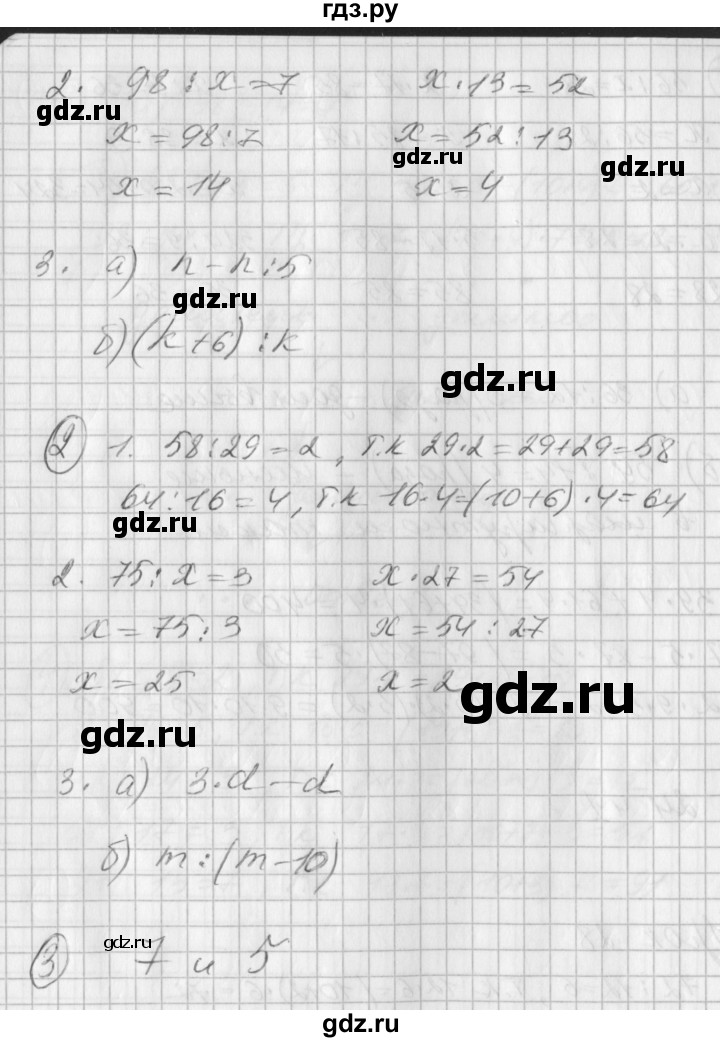 гдз.ру
2. 98 : x = 7 x · 13 = 52
gdz.ru
x = 98 : 7 x = 52 : 13
gdz.ru gdz.ru
x = 14 x = 4
3. а) n - n : 5
gdz.ru
б) (k + 6) : k
gdz.ru
2 1. 58 : 29 = 2, т.к 29·2 = 29+29 = 58
64 : 16 = 4, т.к 16·4 = (10+6)·4 = 64
gdz.ru
2. 75 : x = 3 x · 27 = 54
x = 75 : 3 x = 54 : 27
x = 25 x = 2
gdz.ru
gdz.ru
3. а) 3·d - d
б) m : (m - 10)
gdz.ru
3 7 и 5
gdz.ru